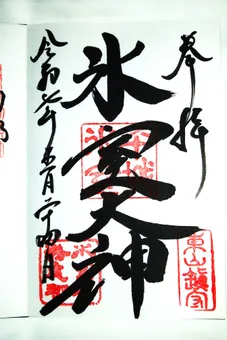 奉拝
氷室大神
令和七年五月二十四日
東山鎮守